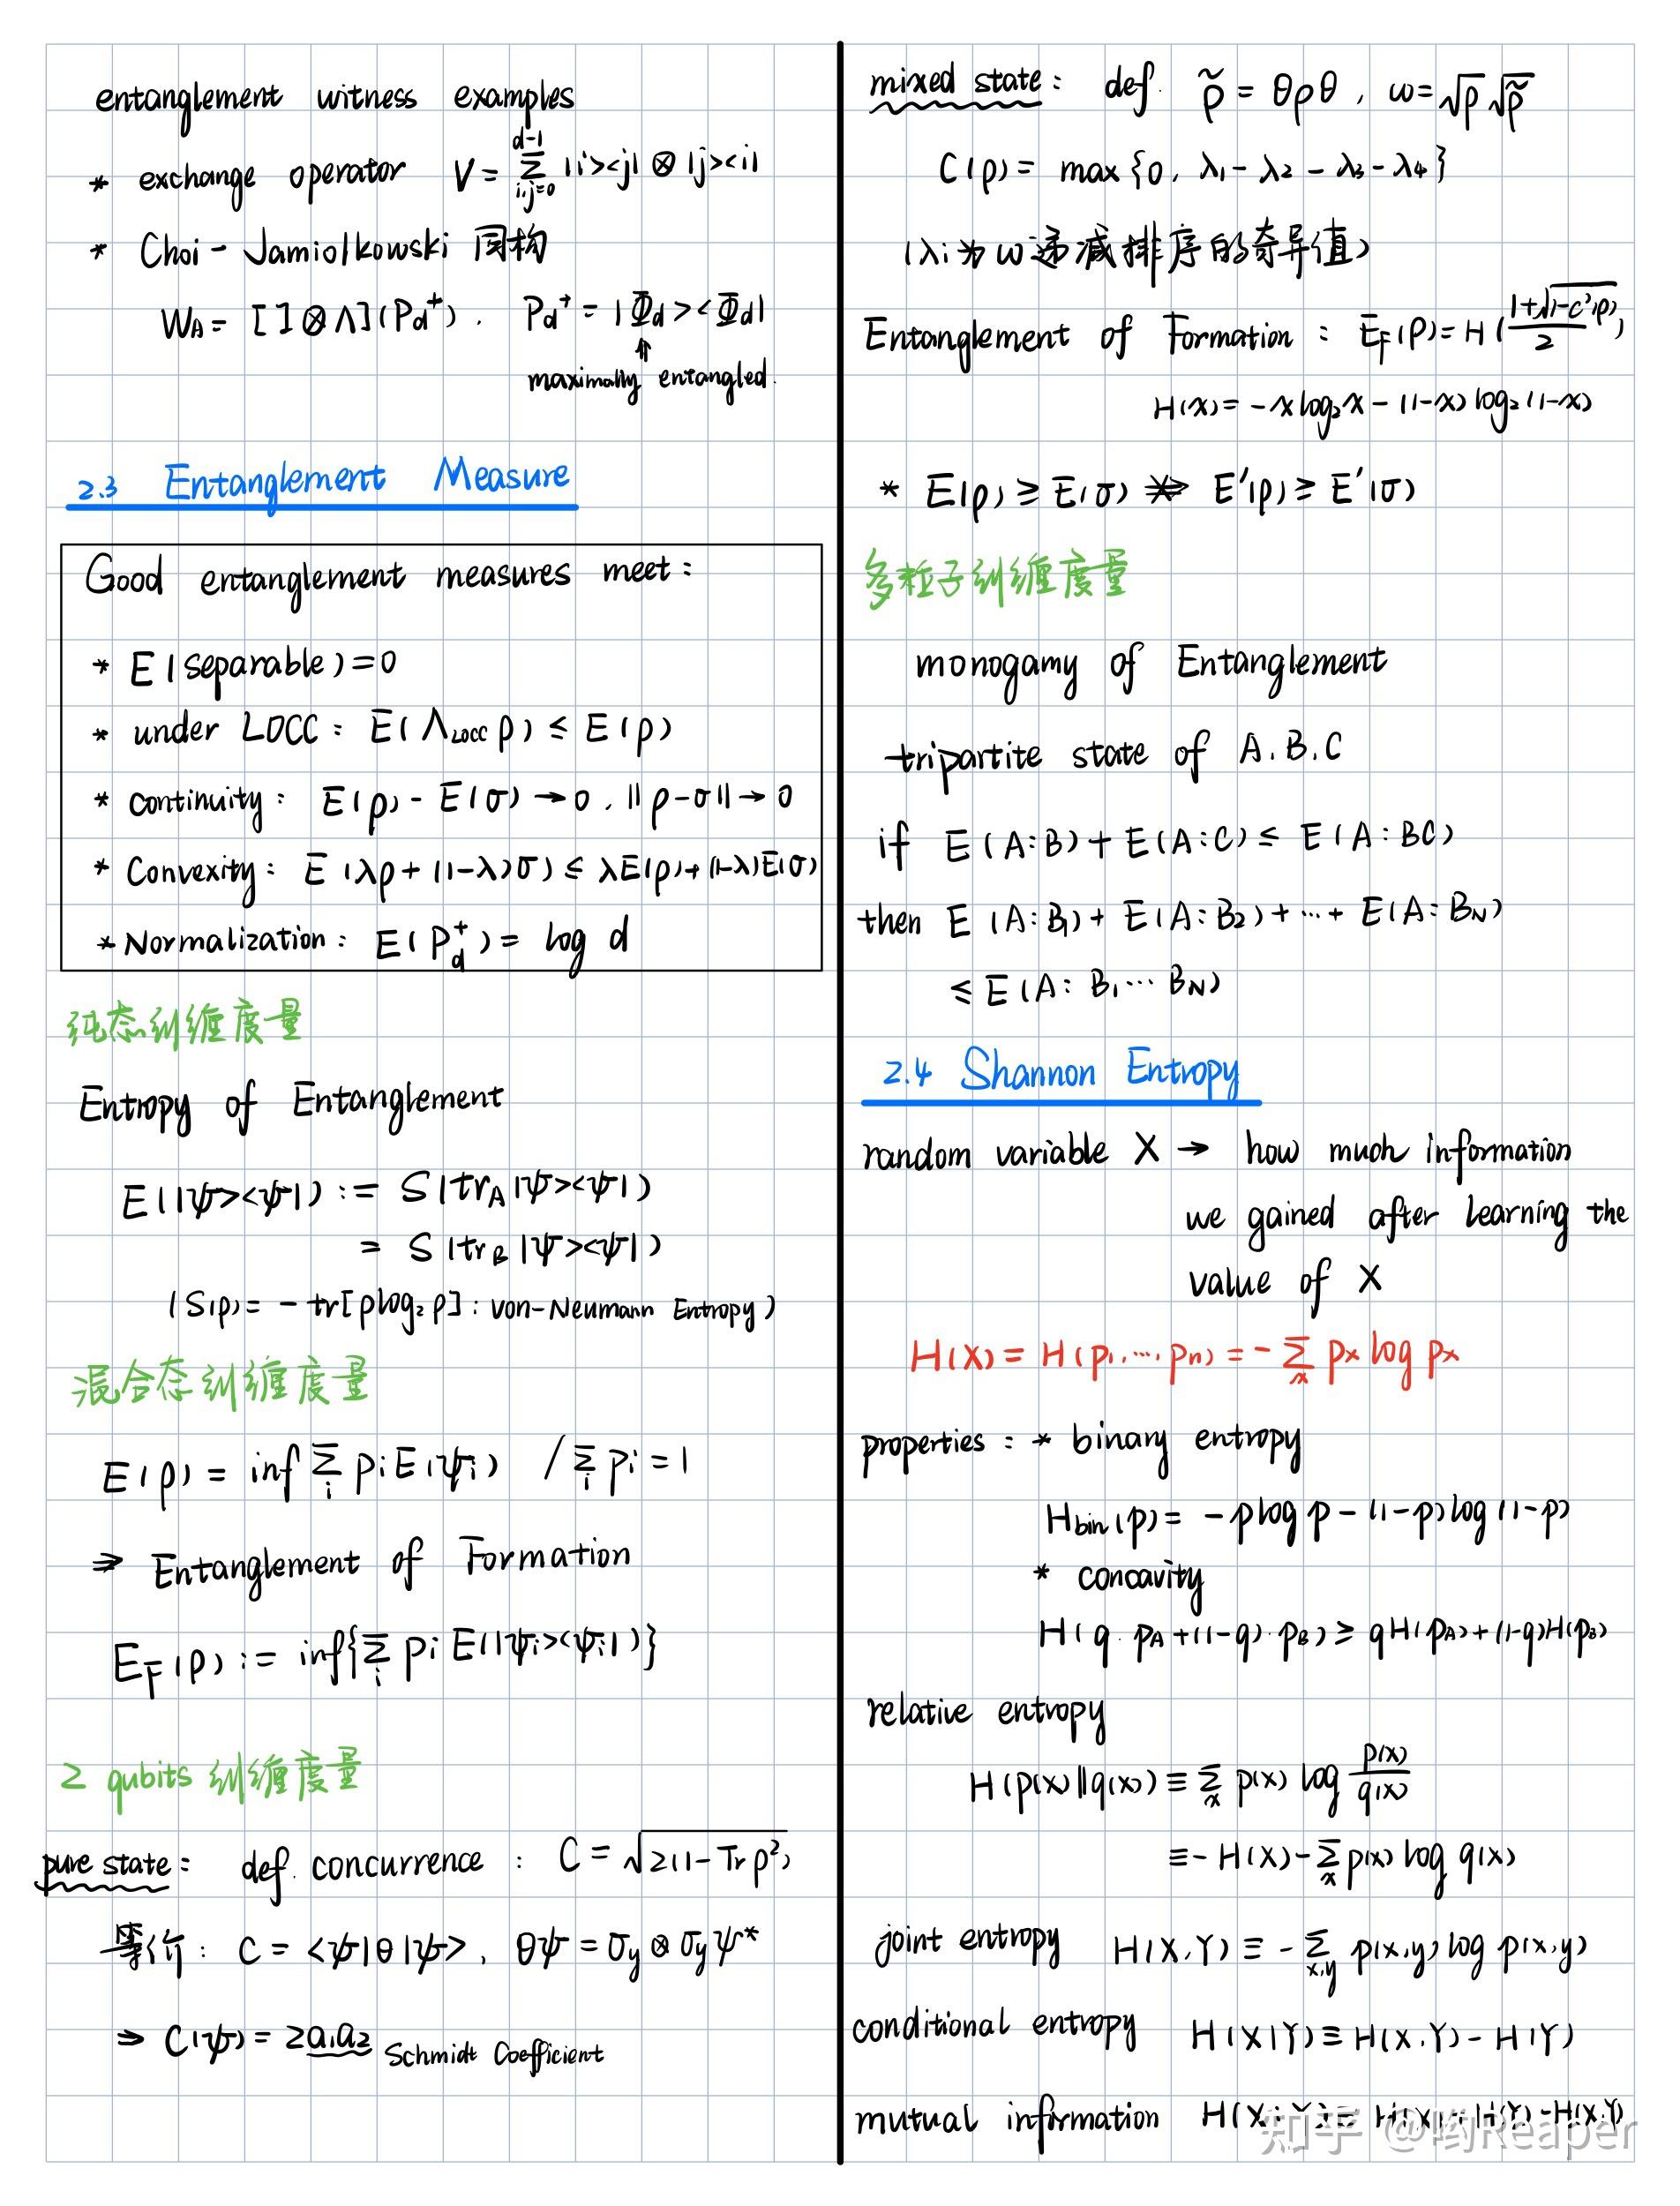 entanglement witness examples
* exchange operator V = Σ_{i,j=0}^{d-1} |i><j| ⊗ |j><i|
* Choi-Jamiolkowski 同构
W_A = [I ⊗ Λ](P_d^+). P_d^+ = |Φ_d><Φ_d|
⇑
maximally entangled.
2.3 Entanglement Measure
Good entanglement measures meet:
* E(separable)=0
* under LOCC: E(Λ_LOCC ρ) ≤ E(ρ)
* continuity: E(ρ) - E(σ) → 0, ||ρ-σ|| → 0
* Convexity: E(λρ + (1-λ)σ) ≤ λE(ρ)+(1-λ)E(σ)
* Normalization: E(P_d^+) = log d
纯态纠缠度量
Entropy of Entanglement
E(|ψ><ψ|) := S(tr_A|ψ><ψ|)
= S(tr_B|ψ><ψ|)
(S(ρ) = -tr[ρlog₂ρ]: von-Neumann Entropy)
混合态纠缠度量
E(ρ) = inf Σ_i p_i E(ψ_i) / Σ_i p_i = 1
⇒ Entanglement of Formation
E_F(ρ) := inf{Σ_i p_i E(|ψ_i><ψ_i|)}
2 qubits 纠缠度量
pure state: def. concurrence: C = √(2(1-Tr ρ²))
等价: C = <ψ|θ|ψ>, θψ = σ_y ⊗ σ_y ψ*
⇒ C(ψ) = 2a₁a₂ Schmidt Coefficient
mixed state: def. ρ̃ = θρθ, ω = √ρ √ρ̃
C(ρ) = max{0, λ₁ - λ₂ - λ₃ - λ₄}
(λi为ω递减排序的奇异值)
Entanglement of Formation: E_F(ρ) = H((1+√(1-c²(ρ)))/2)
H(x) = -xlog₂x - (1-x)log₂(1-x)
* E(ρ) ≥ E(σ) ⇏ E'(ρ) ≥ E'(σ)
多粒子纠缠度量
monogamy of Entanglement
tripartite state of A.B.C
if E(A:B) + E(A:C) ≤ E(A:BC)
then E(A:B₁) + E(A:B₂) + ⋯ + E(A:B_N)
≤ E(A: B₁⋯B_N)
2.4 Shannon Entropy
random variable X → how much information
we gained after learning the
value of X
H(X) = H(p₁,⋯,p_n) = -Σ_x p_x log p_x
properties: * binary entropy
H_bin(p) = -plog p - (1-p)log(1-p)
* concavity
H(q·p_A + (1-q)·p_B) ≥ qH(p_A)+(1-q)H(p_B)
relative entropy
H(p(x)||q(x)) ≡ Σ_x p(x) log p(x)/q(x)
≡ -H(X) - Σ_x p(x) log q(x)
joint entropy H(X,Y) ≡ -Σ_{x,y} p(x,y) log p(x,y)
conditional entropy H(X|Y) ≡ H(X,Y) - H(Y)
mutual information H(X:Y) ≡ H(X)+H(Y)-H(X,Y)
知乎 @哟Reaper